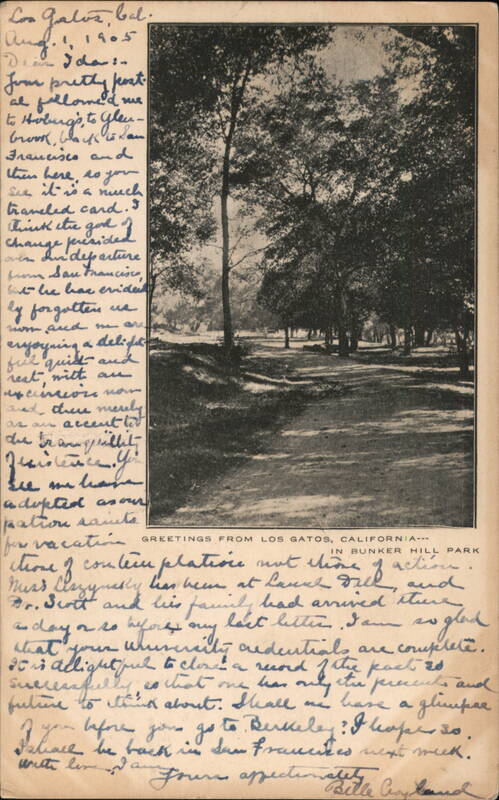 Los Gatos, Cal.
Aug. 1, 1905
Dear Ida:-
Your pretty post-
al followed me
to Hoburg's, to Glen-
brook, back to San
Francisco and
then here, so you
see it is a much
traveled card. I
think the god of
change presided
over our departure
from San Francisco,
but he has evident
ly forgotten us
now and we are
enjoying a delight-
ful quiet and
rest, with an
excursion now
and then merely
as an accent to
the tranquillity
of existence. You
see we have
adopted as our
patron saints
for vacation
those of contemplation not those of action.
Miss has been at Laurel Dell, and
Dr. Scott and his family had arrived there
a day or so before my last letter. I am so glad
that your University credentials are complete.
It is delightful to close a record of the past so
successfully, so that one has only the present and
future to think about. Shall we have a glimpse
of you before you go to Berkeley? I hope so.
I shall be back in San Francisco next week.
With love, I am
Yours affectionately
Belle
GREETINGS FROM LOS GATOS, CALIFORNIA---
IN BUNKER HILL PARK